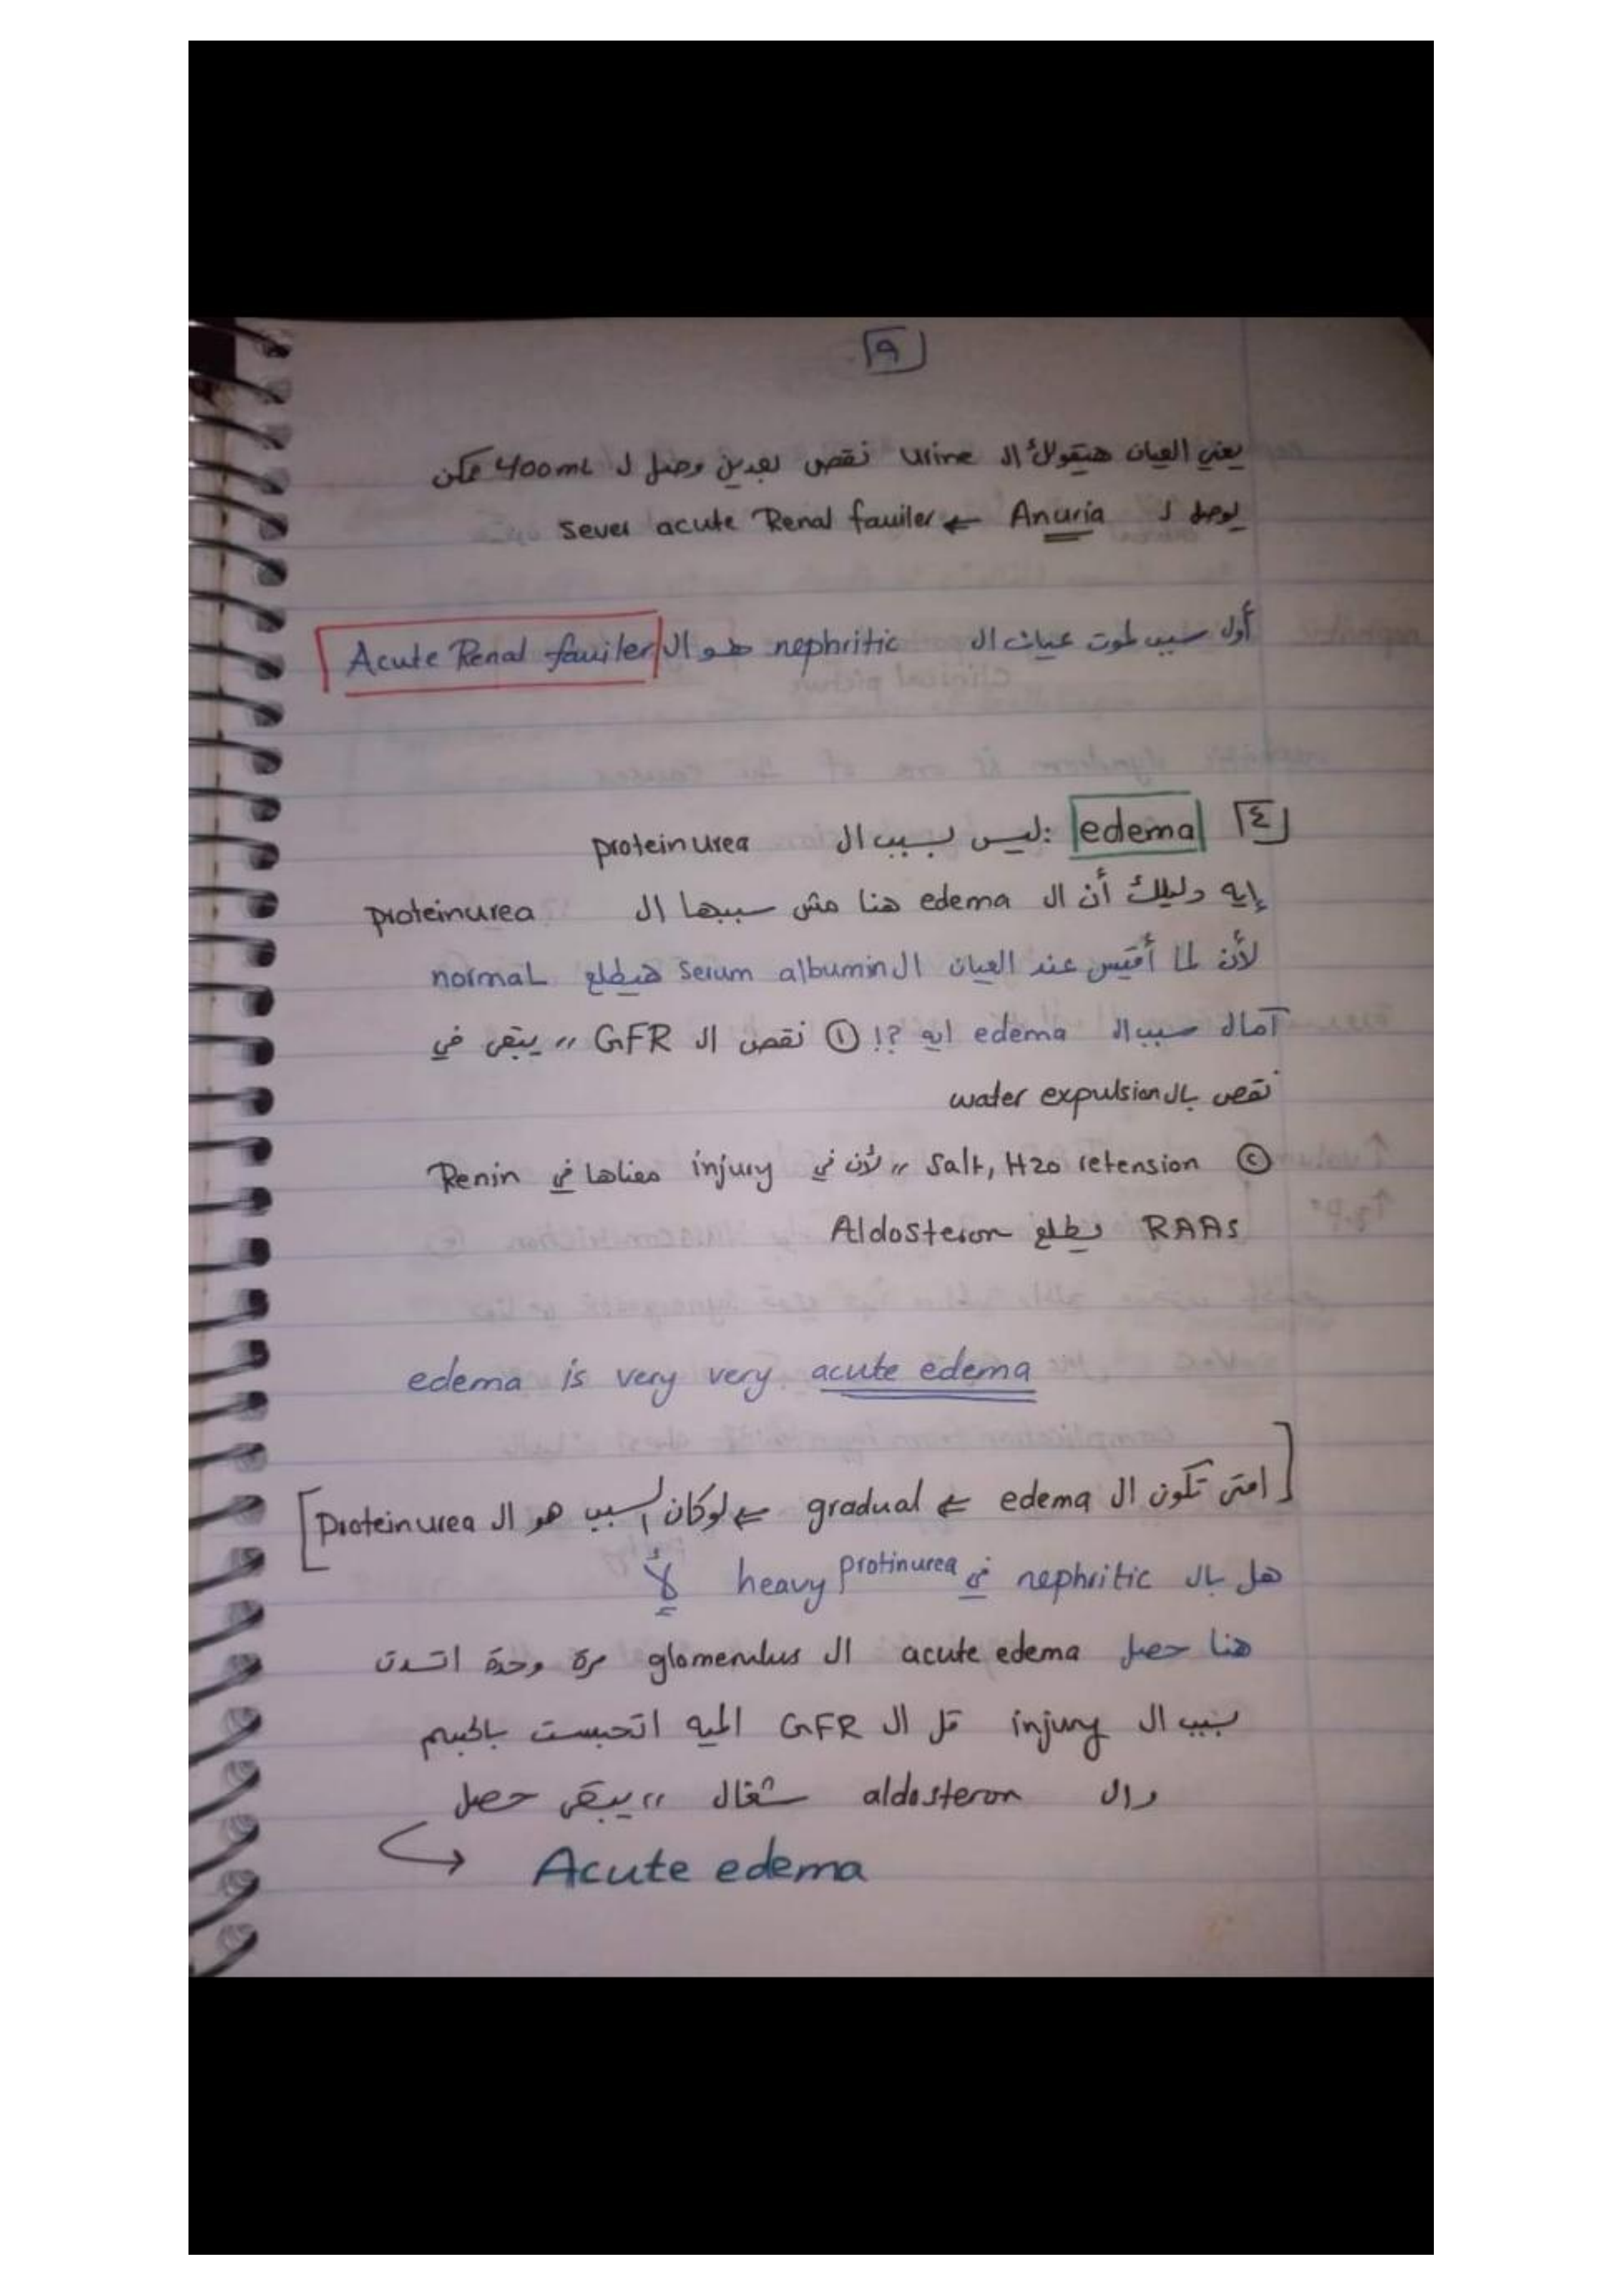 ٩
يعني العيان هيقولك أ ال urine نقص بعدين وصل ل 400mL ممكن
يوصل ل Anuria ⇐ sever acute Renal fauiler
أول سبب لموت عيان ال nephritic هو ال Acute Renal fauiler
٤ edema : ليس بسبب ال proteinurea
إيه دليلك أن ال edema هنا مش سببها ال proteinurea
لأن لما أقيس عند العيان ال serum albumin هيطلع normal
آمال سبب ال edema ايه ?! ① نقص ال GFR ،، يبقى في
نقص بال water expulsion
② Salt, H2o retension ،، لأن في injury معناها في Renin
RAAs يطلع Aldosteron
edema is very very acute edema
[امتى تكون ال edema ⇐ gradual ⇐ لو كان السبب هو ال proteinurea]
هل بال nephritic في heavy protinurea لأ
هنا حصل acute edema ال glomerulus مرة وحدة اتسدت
بسبب ال injury قل ال GFR الميه اتحبست بالجسم
وال aldosteron شغال ،، يبقى حصل
Acute edema